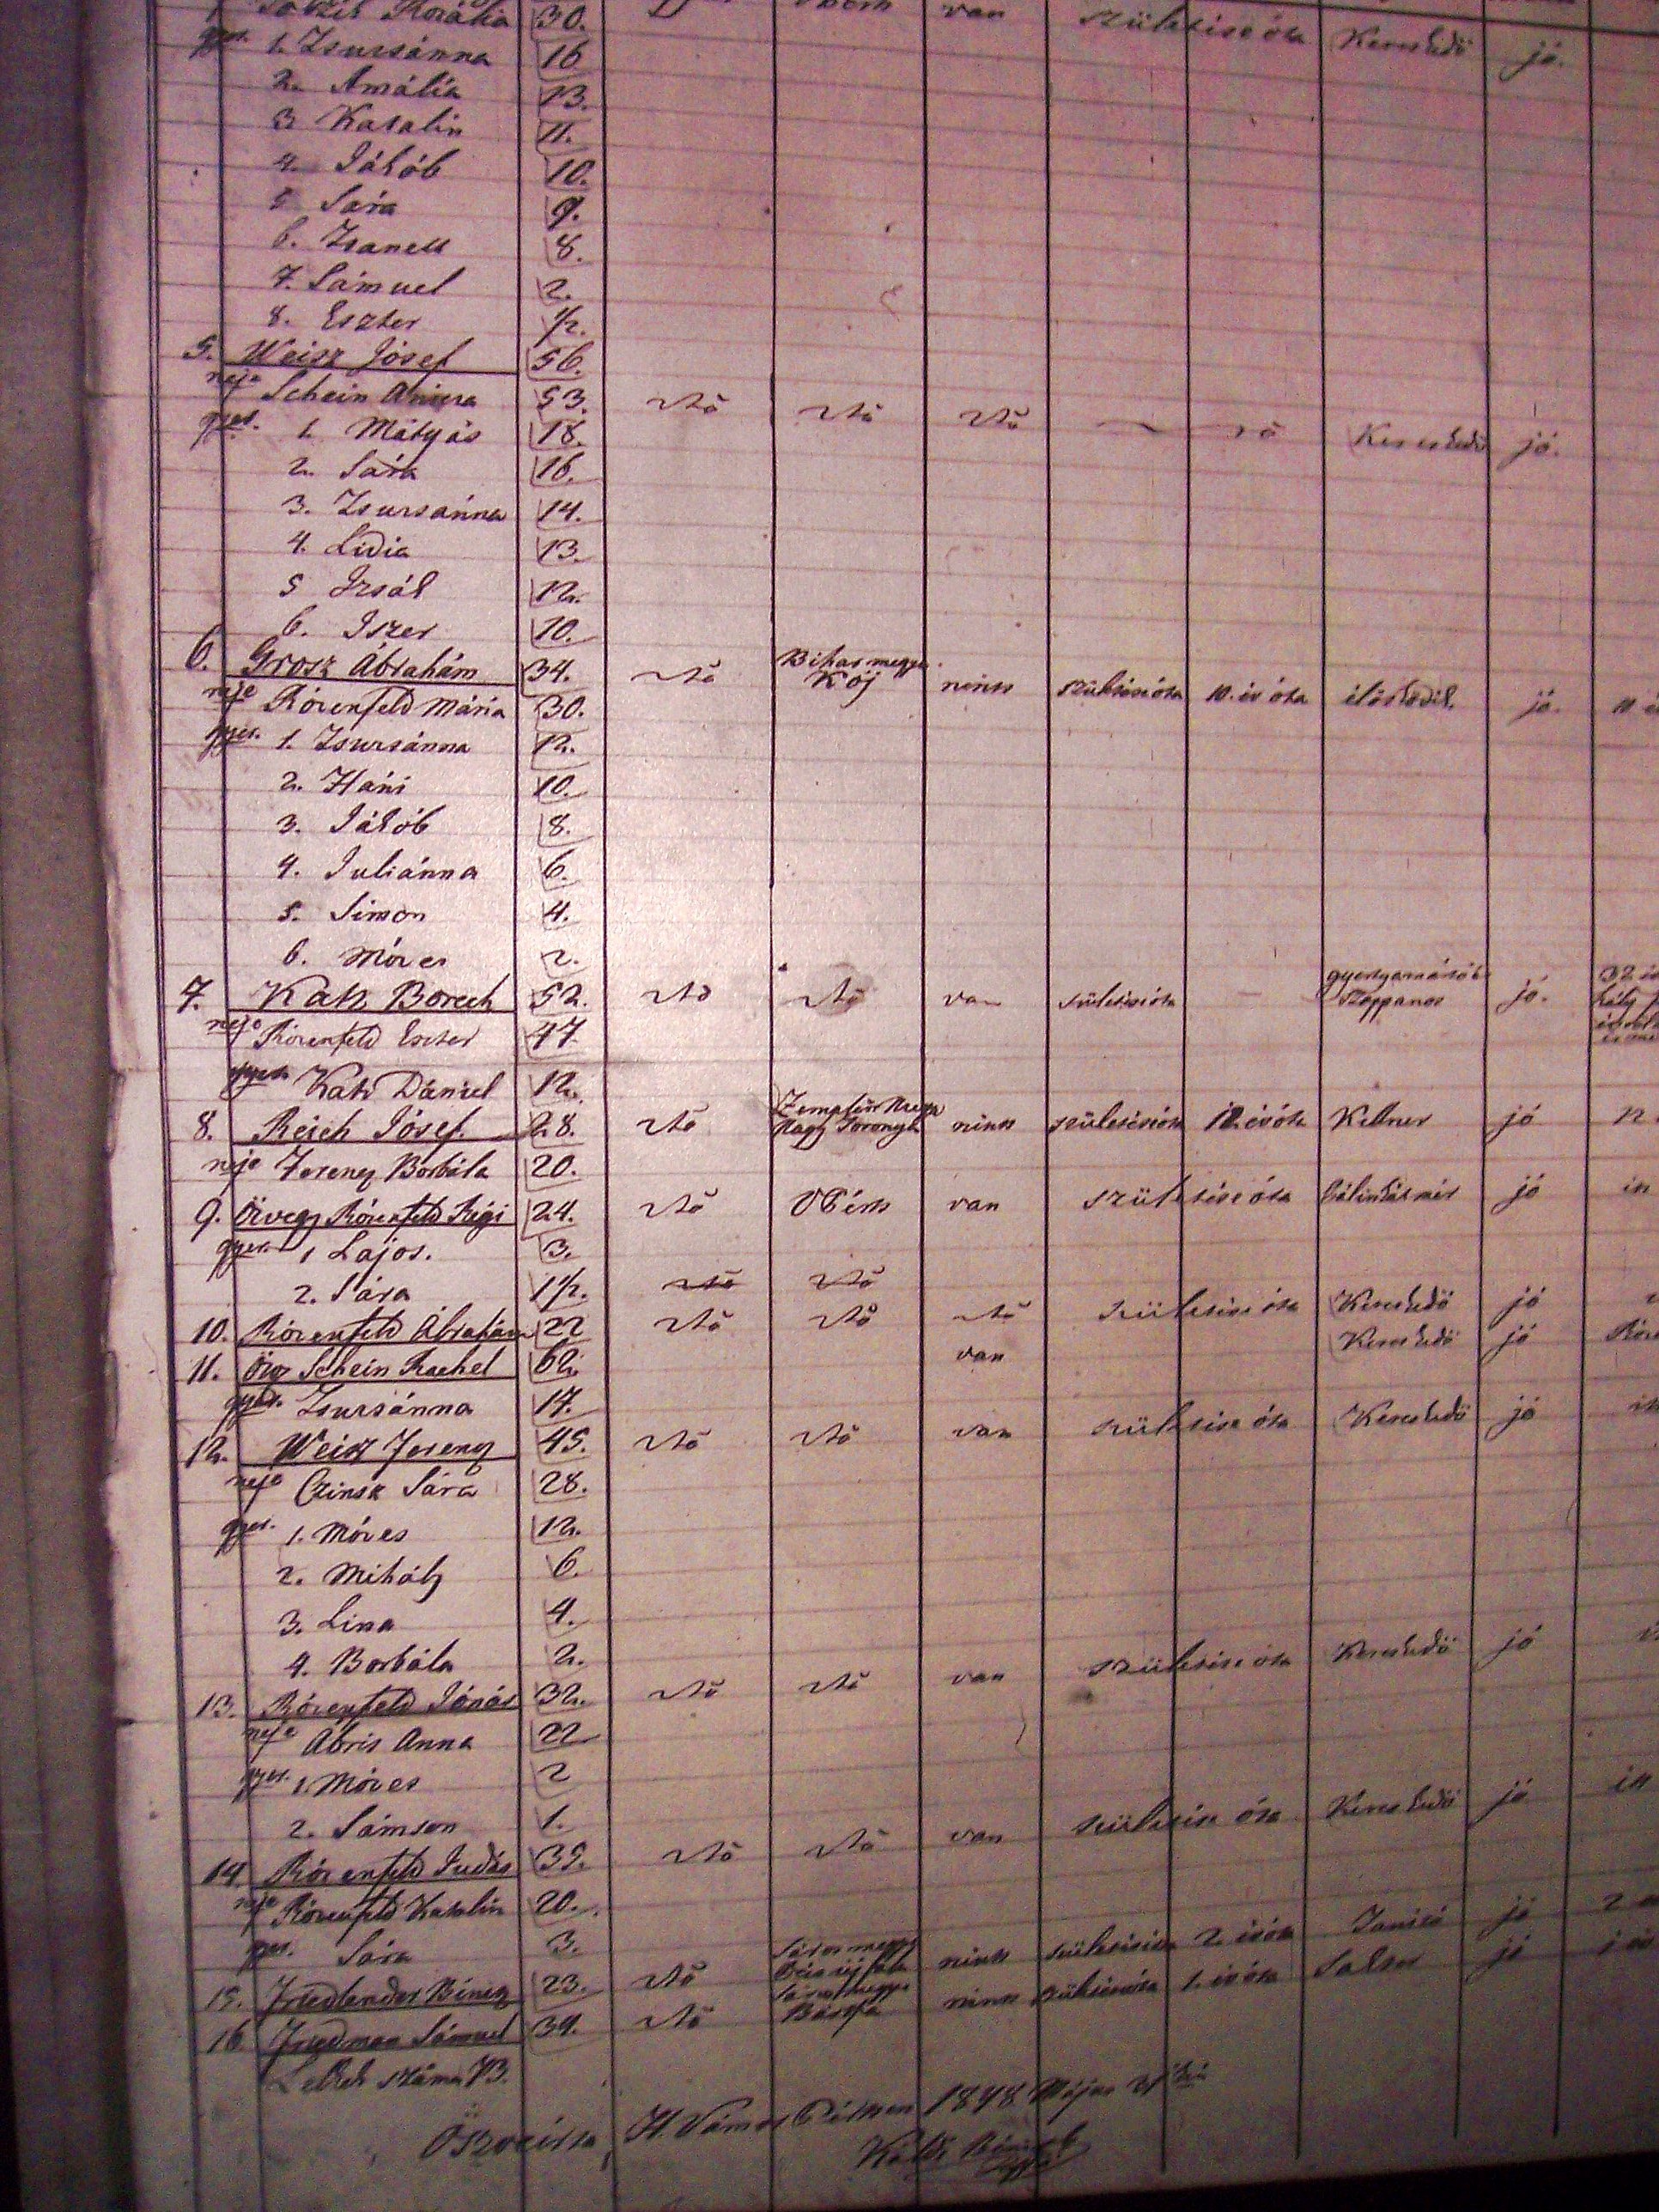 Rozália 30. van születése óta Kereskedő jó.
gyer. 1. Zsuzsánna 16
2. Amália 13.
3 Katalin 11.
4. Jákób 10.
5 Sára 9.
6. Zsanett 8.
7. Sámuel 2.
8. Eszter 1/2.
5. Weisz Jósef 56.
neje Schein Anna 53. dtó dtó dtó Kereskedő jó.
gyer. 1. Mátyás 18.
2. Sára 16.
3. Zsuzsánna 14.
4. Lidia 13.
5 Izsák 12.
6. Iszer 10.
6. Grosz Ábrahám 34. dtó Bihar megye Kój nints születése óta 10. év óta élősködik jó. 10
neje Rózenfeld Mária 30.
gyer. 1. Zsuzsánna 12.
2. Háni 10.
3. Jákób 8.
4. Juliánna 6.
5. Simon 4.
6. Mózes 2.
7. Katz Borech 52. dtó dtó van születése óta gyertyamártó és szappanos jó. 32
neje Rózenfeld Eszter 47
gyer. Katz Dániel 12.
8. Reich Jósef. 28. dtó Zemplén Megye Nagy Toronya nints születése óta 12 év óta Kelner jó
neje Ferency Borbála 20.
9. Özvegy Rózenfeld Régi 24. dtó VPércs van születése óta Pálinkás mér jó
gyer. 1 Lajos. 3.
2. Sára 1 1/2. dtó dtó
10. Rózenfeld Ábrahám 22 dtó dtó dtó születése óta Kereskedő jó
11. Özv Schein Rachel 62. van Kereskedő jó
gyer. Zsuzsánna 17.
12. Weisz Ferency 45. dtó dtó van születése óta Kereskedő jó
neje Czinsz Sára 28.
gyer. 1. Mózes 12.
2. Mihály 6.
3. Lina 4.
4. Borbála 2.
13. Rózenfeld Jónás 32. dtó dtó van születése óta Kereskedő jó
neje Ábris Anna 22
gyer. 1. Mózes 2
2. Sámson 1.
14. Rózenfeld Judás 35. dtó dtó van születése óta Kereskedő jó
neje Rózenfeld Katalin 20.
gyer. Sára 3.
15. Friedlender Bineg 23. dtó Sáros megye nints születése óta 2 év óta Tanító jó 2
16 Friedman Sámuel 34. dtó Sáros megye Bártfa nints születése óta 1. év óta Sakter jó
Lelkek száma 73.
Öszveírta H. Vámos Pércsen 1848 Május